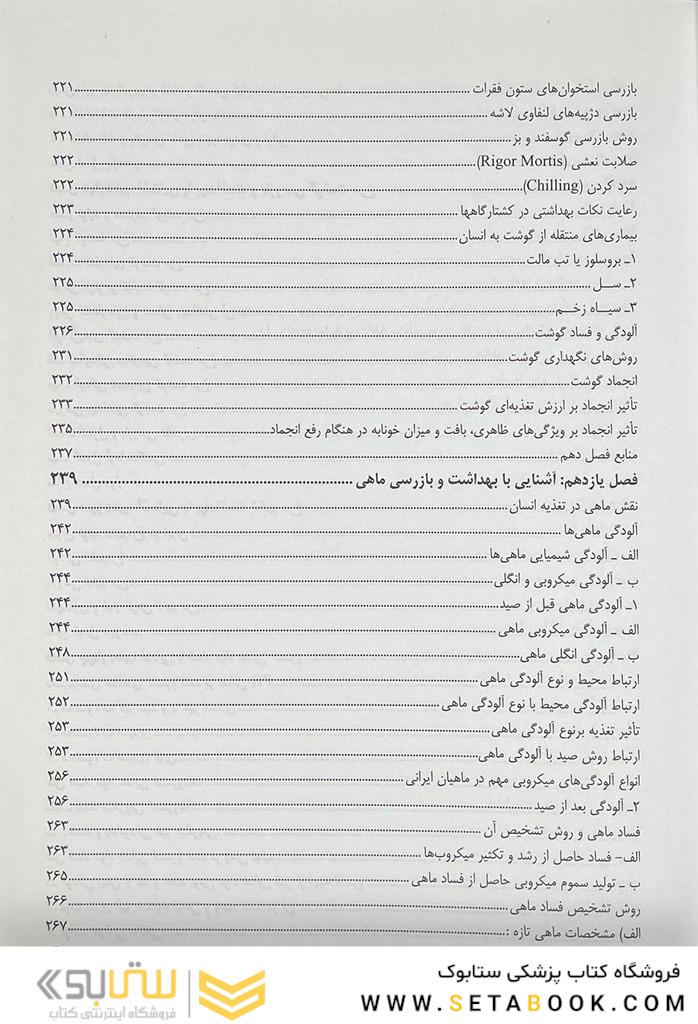 بازرسی استخوان‌های ستون فقرات ........ ۲۲۱
بازرسی دژپیه‌های لنفاوی لاشه ........ ۲۲۱
روش بازرسی گوسفند و بز ........ ۲۲۱
صلابت نعشی (Rigor Mortis) ........ ۲۲۲
سرد کردن (Chilling) ........ ۲۲۲
رعایت نکات بهداشتی در کشتارگاهها ........ ۲۲۳
بیماری‌های منتقله از گوشت به انسان ........ ۲۲۴
۱ـ بروسلوز یا تب مالت ........ ۲۲۴
۲ـ ســل ........ ۲۲۵
۳ـ سیـاه زخـم ........ ۲۲۵
آلودگی و فساد گوشت ........ ۲۲۶
روش‌های نگهداری گوشت ........ ۲۳۱
انجماد گوشت ........ ۲۳۲
تأثیر انجماد بر ارزش تغذیه‌ای گوشت ........ ۲۳۳
تأثیر انجماد بر ویژگی‌های ظاهری، بافت و میزان خونابه در هنگام رفع انجماد ........ ۲۳۵
منابع فصل دهم ........ ۲۳۷
فصل یازدهم: آشنایی با بهداشت و بازرسی ماهی ........ ۲۳۹
نقش ماهی در تغذیه انسان ........ ۲۳۹
آلودگی ماهی‌ها ........ ۲۴۲
الف ـ آلودگی شیمیایی ماهی‌ها ........ ۲۴۲
ب ـ آلودگی میکروبی و انگلی ........ ۲۴۴
۱ـ آلودگی ماهی قبل از صید ........ ۲۴۴
الف ـ آلودگی میکروبی ماهی ........ ۲۴۴
ب ـ آلودگی انگلی ماهی ........ ۲۴۸
ارتباط محیط و نوع آلودگی ماهی ........ ۲۵۱
ارتباط آلودگی محیط با نوع آلودگی ماهی ........ ۲۵۲
تأثیر تغذیه برنوع آلودگی ماهی ........ ۲۵۳
ارتباط روش صید با آلودگی ماهی ........ ۲۵۳
انواع آلودگی‌های میکروبی مهم در ماهیان ایرانی ........ ۲۵۶
۲ـ آلودگی بعد از صید ........ ۲۵۶
فساد ماهی و روش تشخیص آن ........ ۲۶۳
الف- فساد حاصل از رشد و تکثیر میکروب‌ها ........ ۲۶۳
ب ـ تولید سموم میکروبی حاصل از فساد ماهی ........ ۲۶۵
روش تشخیص فساد ماهی ........ ۲۶۶
الف) مشخصات ماهی تازه : ........ ۲۶۷
فروشگاه کتاب پزشکی ستابوک
WWW.SETABOOK.COM
ستابوک
فروشگاه اینترنتی کتاب